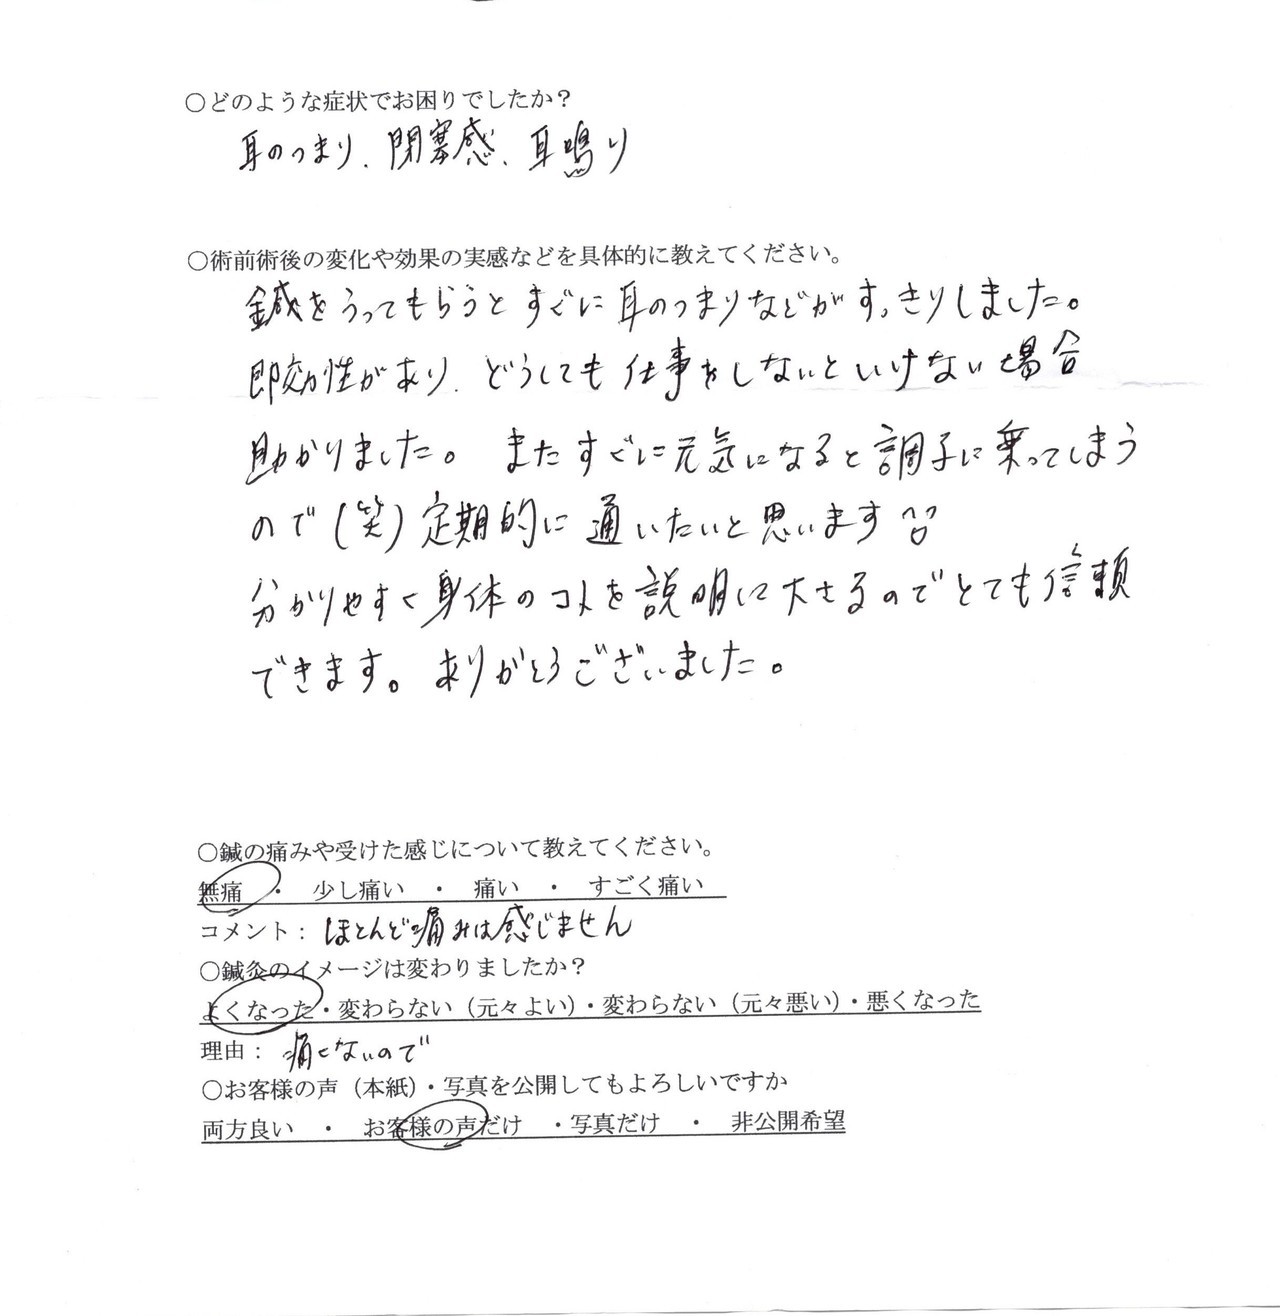 ○どのような症状でお困りでしたか？
耳のつまり、閉塞感、耳鳴り
○術前術後の変化や効果の実感などを具体的に教えてください。
鍼をうってもらうとすぐに耳のつまりなどがすっきりしました。
即効性があり、どうしても仕事をしないといけない場合
助かりました。またすぐに元気になると調子に乗ってしまう
ので(笑)定期的に通いたいと思います
分かりやすく身体のコトを説明して下さるのでとても信頼
できます。ありがとうございました。
○鍼の痛みや受けた感じについて教えてください。
無痛 ・ 少し痛い ・ 痛い ・ すごく痛い
コメント： ほとんど痛みは感じません
○鍼灸のイメージは変わりましたか？
よくなった・変わらない（元々よい）・変わらない（元々悪い）・悪くなった
理由： 痛くないので
○お客様の声（本紙）・写真を公開してもよろしいですか
両方良い ・ お客様の声だけ ・写真だけ ・ 非公開希望